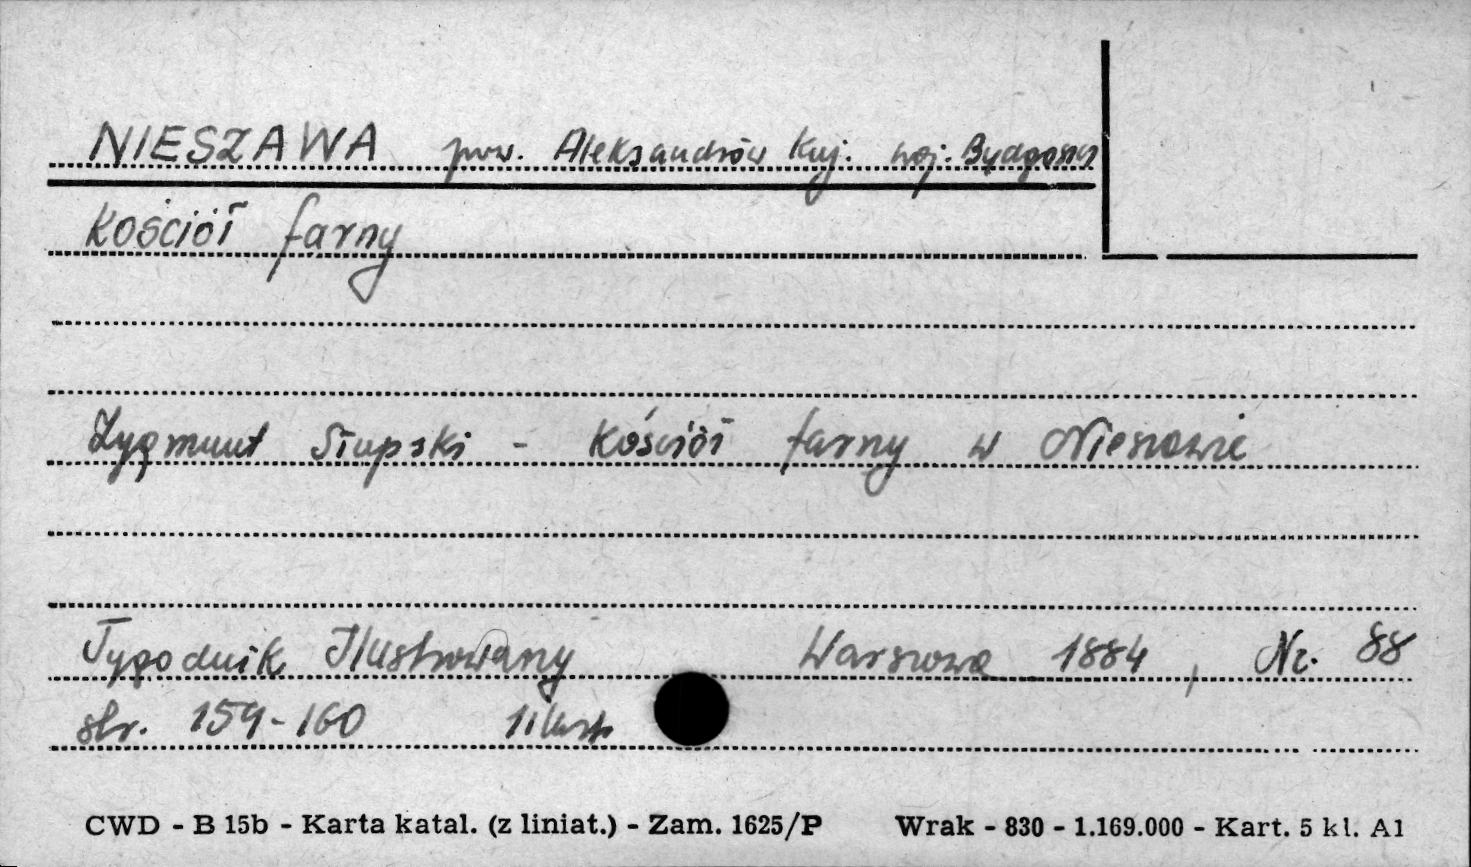 NIESZAWA pow. Aleksandrów Kuj. woj. Bydgoszcz
Kościół farny
Zygmunt Słupski - Kościół farny w Nieszawie
Tygodnik Ilustrowany Warszawa 1884, Nr. 88
str. 159-160 1 ilustr.
CWD - B 15b - Karta katal. (z liniat.) - Zam. 1625/P Wrak - 830 - 1.169.000 - Kart. 5 kl. A1